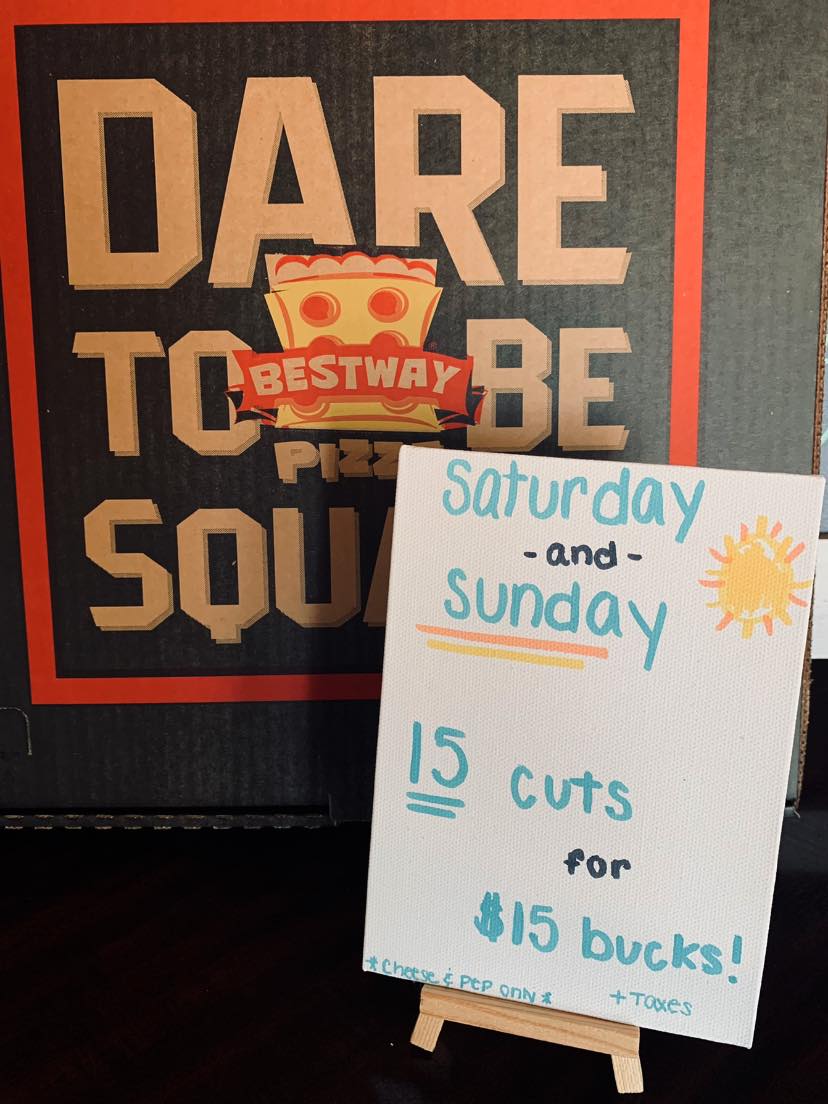 DARE
TO BE
BESTWAY
PIZZ
SQU
Saturday
-and-
Sunday
15 cuts
for
$15 bucks!
*Cheese & PEP ONLY*
+Taxes